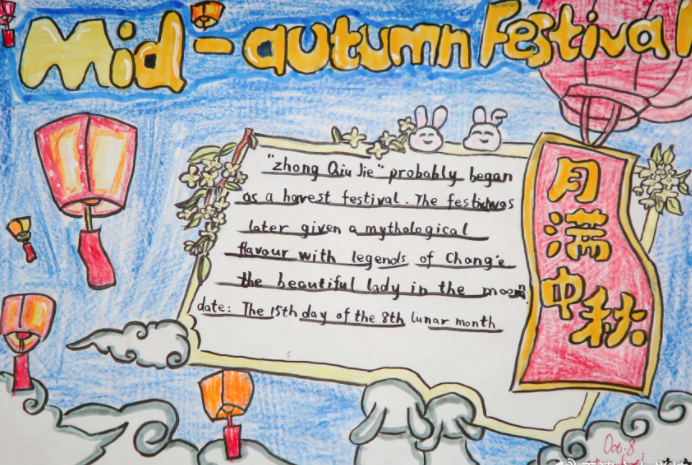 Mid-autumn Festival
"zhong Qiu Jie" probably began
as a harvest festival. The festival was
later given a mythological
flavour with legends of Chang'e
the beautiful lady in the moon
date: The 15th day of the 8th lunar month
月满中秋
Oct.8